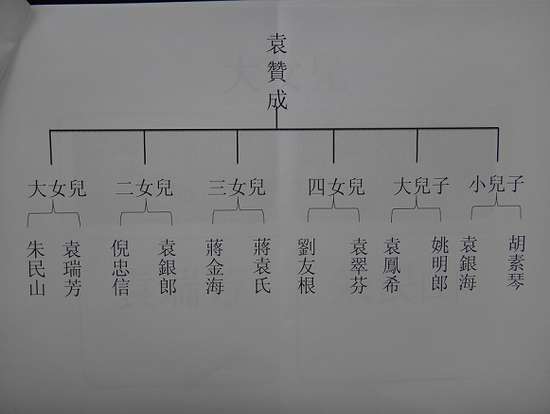 袁贊成
大女兒 二女兒 三女兒 四女兒 大兒子 小兒子
朱民山 袁瑞芳 倪忠信 袁銀郎 蔣金海 蔣袁氏 劉友根 袁翠芬 袁鳳希 姚明郎 袁銀海 胡素琴